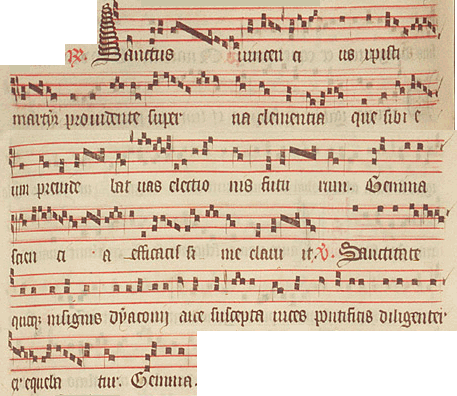 R. Sanctus vincen ci us xpisti
martyr providente super na clementia que sibi e
um previde lat vas electio nis futu rum. Gemma
scien ci a efficacis si me claru it. V. Sanctitate
quoqz insignis dyaconij arce suscepta vices pontificis diligenter
exequeba tur. Gemma.